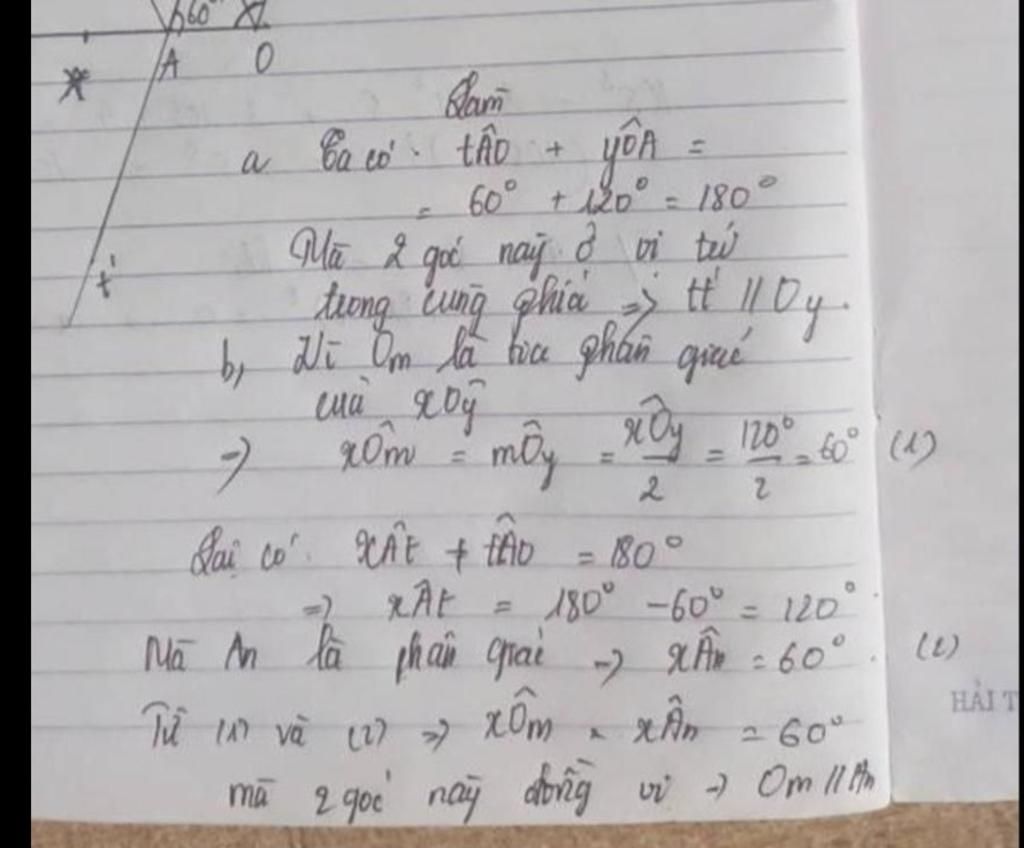 60°
x A O
t'
Làm
a Ta có: tÂO + yÔA =
= 60° + 120° = 180°
Mà 2 góc này ở vị trí
trong cùng phía => tt' // Oy.
b, Vì Om là tia phân giác
của xOy
=> xÔm = mÔy = xÔy/2 = 120°/2 = 60° (1)
Lại có: xÂt + tÂO = 180°
=> xÂt = 180° - 60° = 120°.
Mà An là phân giác => xÂn = 60°. (2)
Từ (1) và (2) => xÔm = xÂn = 60°
mà 2 góc này đồng vị => Om // An
HẢI T